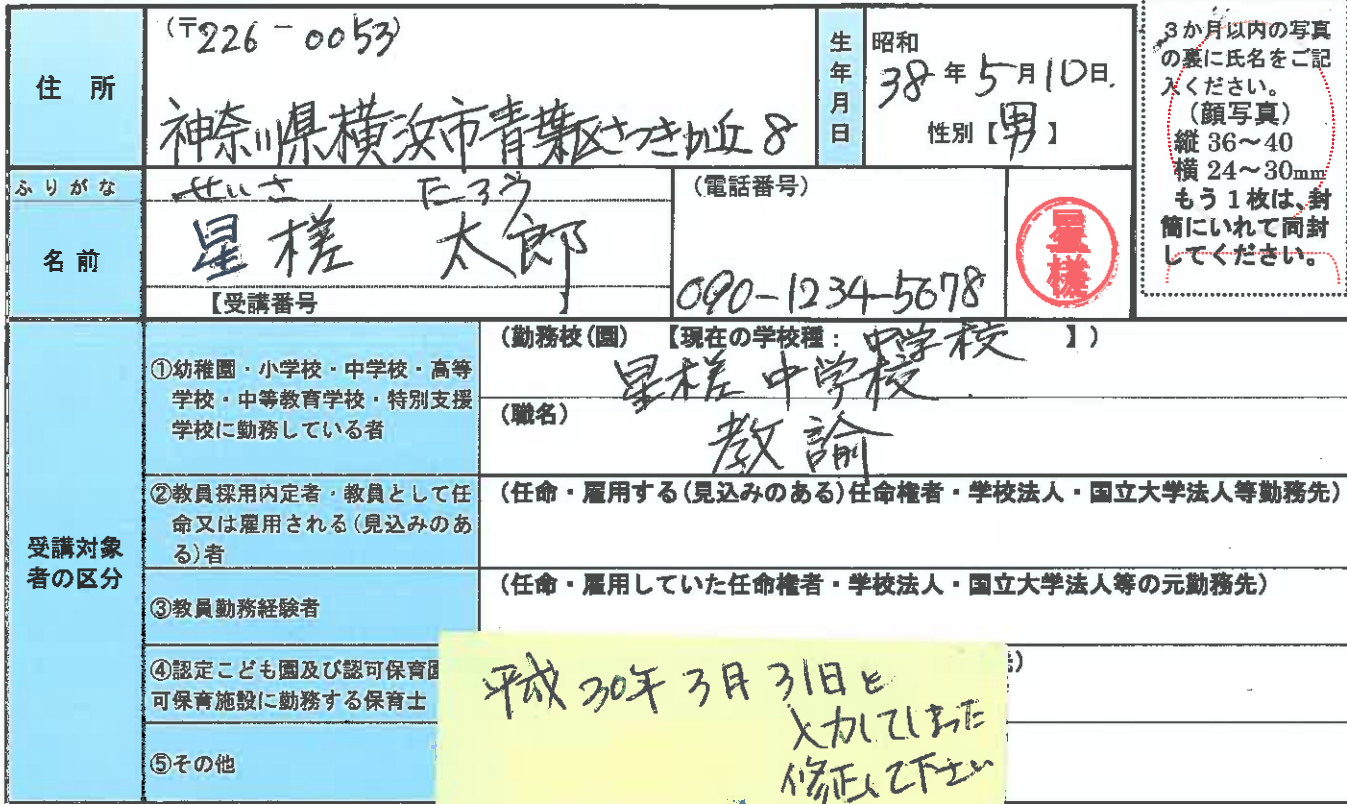 (〒226-0053)
住所
神奈川県横浜市青葉区さつきが丘8
生年月日
昭和
38年5月10日.
性別【男】
3か月以内の写真
の裏に氏名をご記
入ください。
(顔写真)
縦 36～40
横 24～30mm
もう1枚は、封
筒にいれて同封
してください。
ふりがな
せいさ たろう
名前
星槎 太郎
【受講番号 】
(電話番号)
090-1234-5678
星槎
受講対象
者の区分
①幼稚園・小学校・中学校・高等
学校・中等教育学校・特別支援
学校に勤務している者
(勤務校(園) 【現在の学校種：中学校 】)
星槎中学校
(職名)
教諭
②教員採用内定者・教員として任
命又は雇用される(見込みのあ
る)者
(任命・雇用する(見込みのある)任命権者・学校法人・国立大学法人等勤務先)
③教員勤務経験者
(任命・雇用していた任命権者・学校法人・国立大学法人等の元勤務先)
④認定こども園及び認可保育園
可保育施設に勤務する保育士
⑤その他
平成30年3月31日と
入力してしまった
修正して下さい